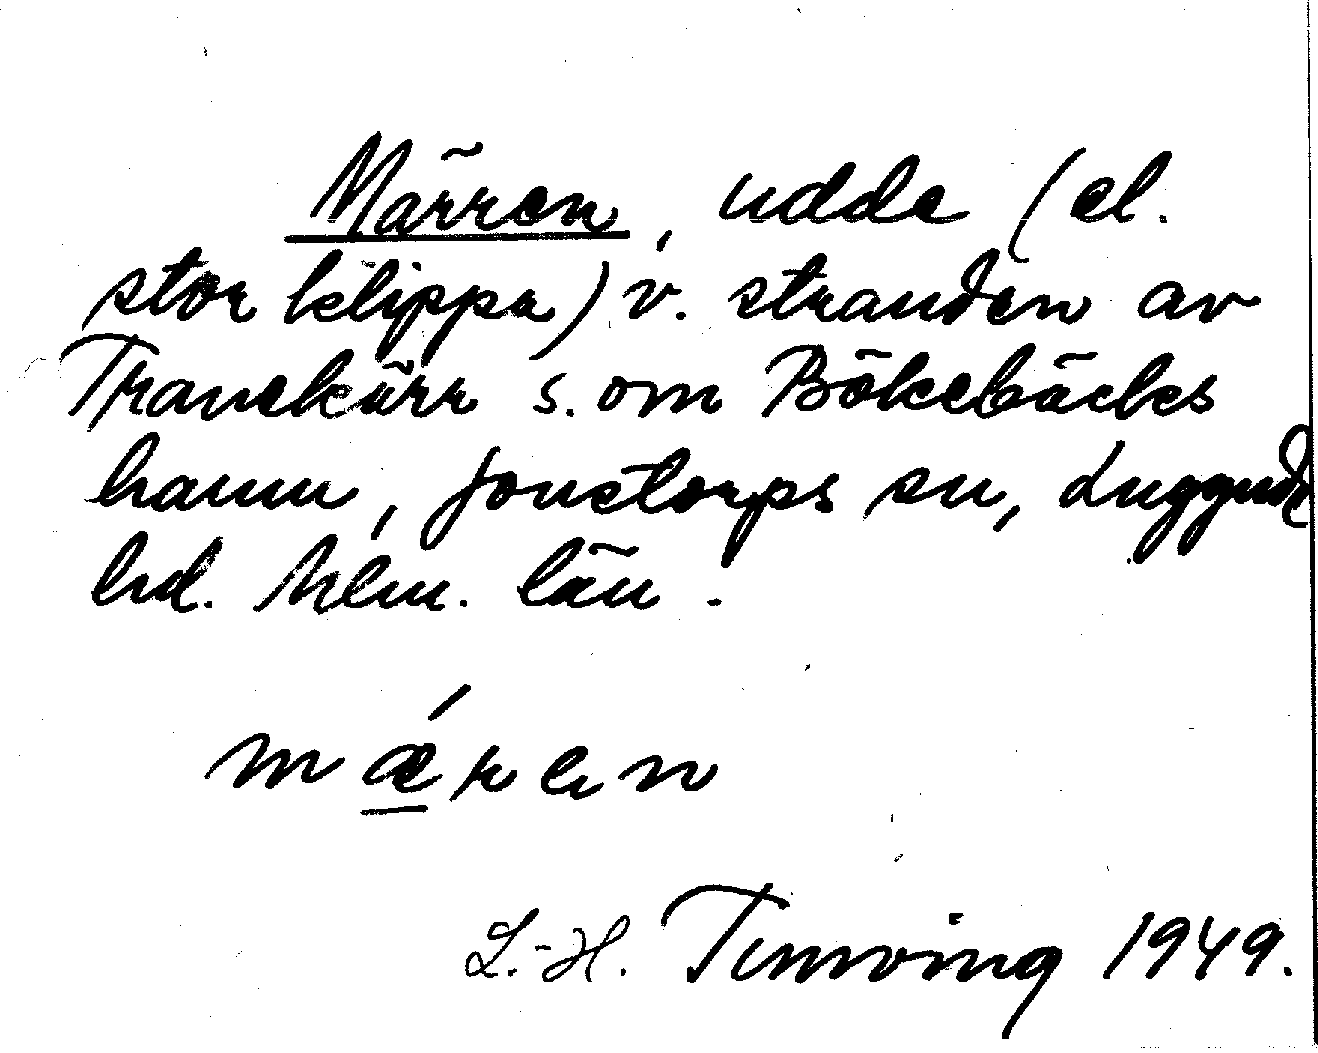 Märren, udde (el.
stor klippa) v. stranden av
Tranekärr s. om Bökebäcks
hamn, Jonstorps sn, Luggude
hd. Mlm. län.
mǽren
L.-H. Tunving 1949.